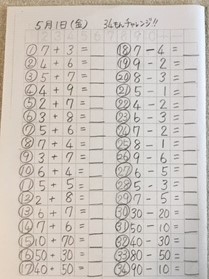 5月1日(金) 34もんチャレンジ!!
① 7 + 3 =
② 4 + 6 =
③ 5 + 7 =
④ 9 + 4 =
⑤ 2 + 7 =
⑥ 4 + 8 =
⑦ 7 + 7 =
⑧ 9 + 4 =
⑨ 3 + 7 =
⑩ 6 + 6 =
⑪ 5 + 5 =
⑫ 2 + 8 =
⑬ 6 + 7 =
⑭ 7 + 6 =
⑮ 10 + 70 =
⑯ 50 + 30 =
⑰ 40 + 50 =
⑱ 7 - 4 =
⑲ 9 - 2 =
⑳ 8 - 3 =
㉑ 5 - 1 =
㉒ 6 - 4 =
㉓ 8 - 5 =
㉔ 9 - 3 =
㉕ 8 - 1 =
㉖ 9 - 6 =
㉗ 6 - 5 =
㉘ 5 - 3 =
㉙ 7 - 5 =
㉚ 30 - 20 =
㉛ 50 - 10 =
㉜ 90 - 30 =
㉝ 80 - 50 =
㉞ 90 - 10 =